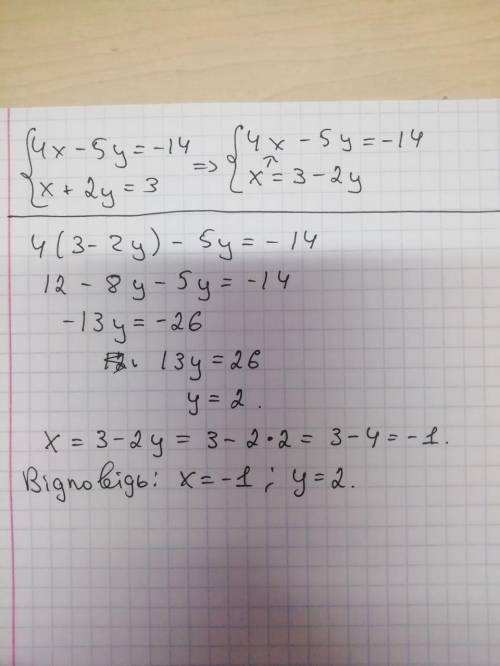 {4x - 5y = -14 => {4x - 5y = -14
{x + 2y = 3 {x = 3 - 2y
4(3 - 2y) - 5y = -14
12 - 8y - 5y = -14
-13y = -26
13y = 26
y = 2.
x = 3 - 2y = 3 - 2·2 = 3 - 4 = -1.
Відповідь: x = -1; y = 2.